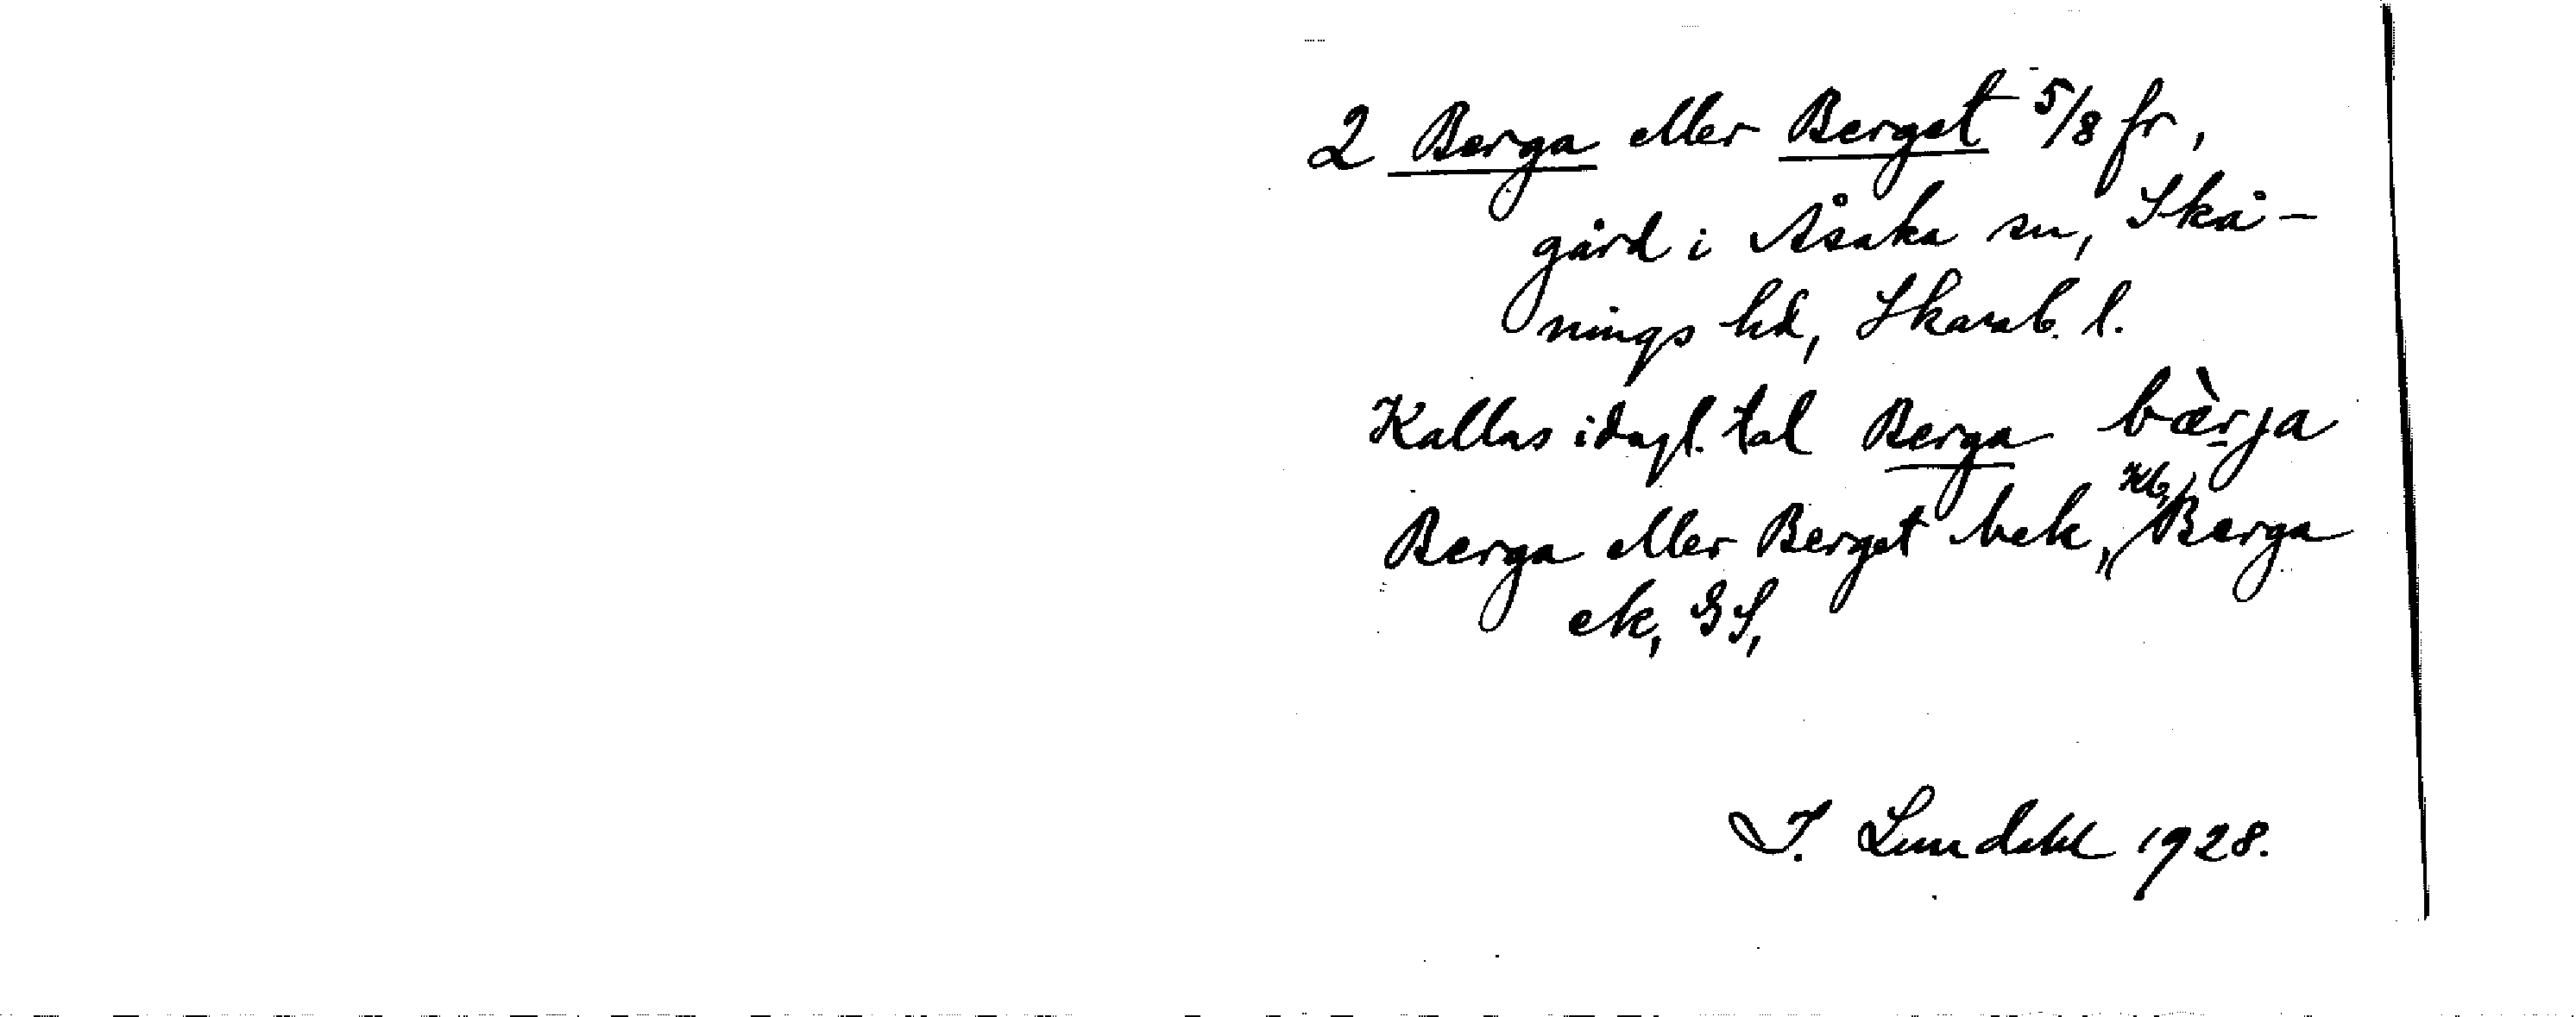 2 Berga eller Berget 5/8 fr,
gård i Åsaka sn, Skå-
nings hd, Skarab. l.
Kallas i dagl. tal Berga bæ̀rja
Berga eller Berget bek, Kb, Berga
ek, GS,
I. Lundahl 1928.